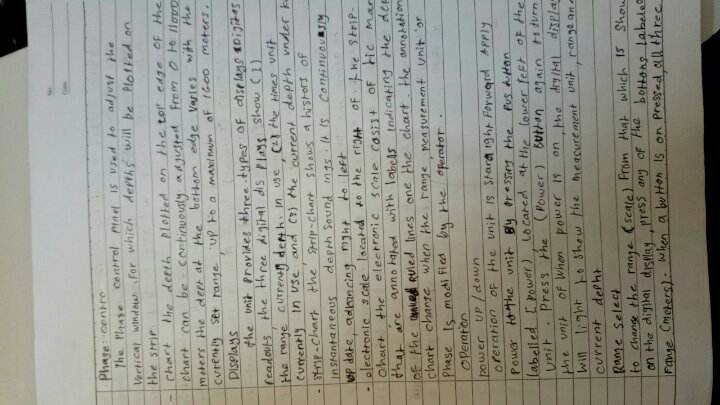 Phase: contro
The Phase control Panel is used to adjust the
Vertical window for which depths will be Plotted on
the strip
- chart the depth Plotted on the top edge of the
chart can be continuously adjusted from 0 to 11000
meters the dept at the bottom edge Varies with the
currently set range up to a maximum of 1600 meters.
Displays
the unit Provides three types of displays Digites
readouts the three digital dis Plays show (1)
the range currently depth in use, (2) the times unit
currently in use and (3) the current depth under
- strip-chart the strip-chart shows a history of
instantaneous depth sound ings. it is continuously
up date, advancing right to left
- electronic scale located to the right of the strip.
Chart the electronic scale cosist of tic mar
that are annotated with labels indicating the de
of the ruled lines one the chart. the annotation
chart change when the range, measurement unit or
Phase is modified by the operator.
Operation
power up / down
operation of the unit is straight Forward Apply
Power to the unit By Pressing the Pus button
labelled (Power) Located at the lower left of the
unit. Press the (Power) Button again to turn
the unit of when power is on, the digital display
Will light to show the measurement unit, range an
current depht
Range select
to change the range (scale) From that which is show
on the digital display, press any of the bottons labeled
range (meters). When a botton is on Pressed, all three